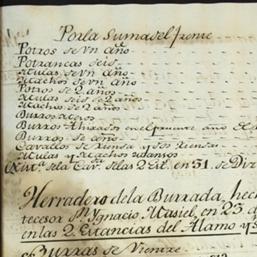 Por la Suma del frente
Potros de Vn año
Potrancas seis
Mulas de Vn año
Machos de Vn año
Potros de 2 años
Mulas seis de 2 años
Machos de 2 años
Burros
Burros Ahixados en el presente año
Burros de año
Cavallos de Rienda y sus
Mulas y Machos Mansos
en 31 de Dir
Herradero de la Burrada, hec
tecesor Dn Ygnacio Masiel, en 23 d
en las 2. Estancias del Alamo y S
Burras de Vientre